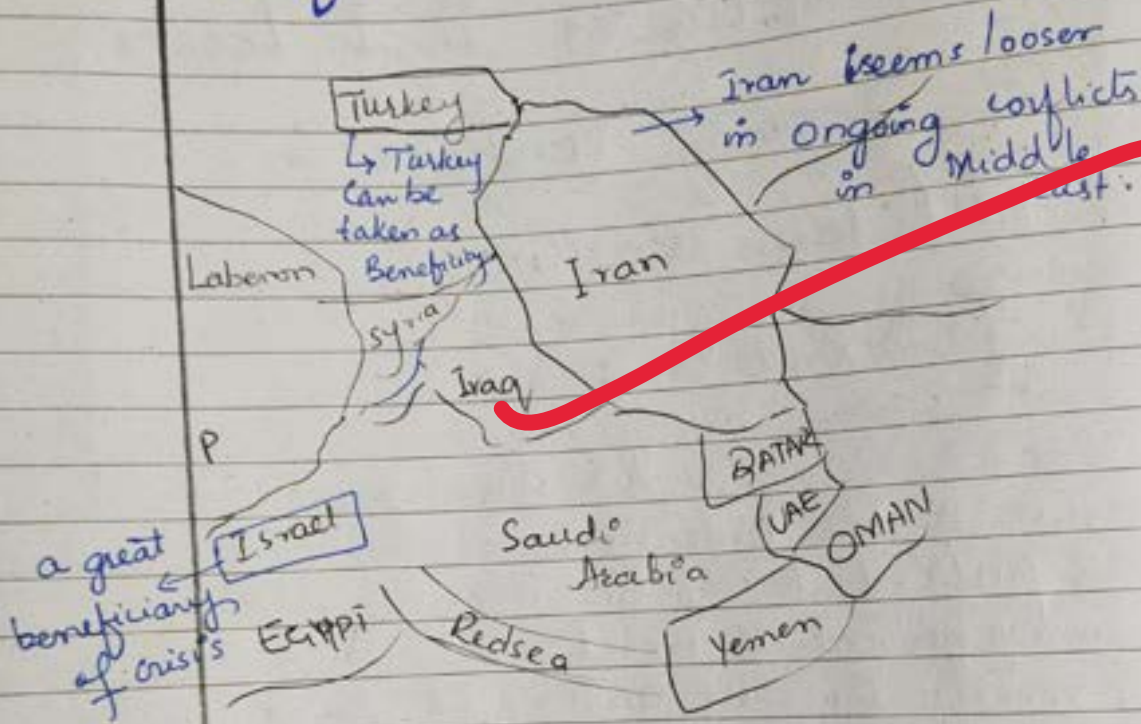 Turkey
↳ Turkey
Can be
taken as
Iran seems looser
in ongoing conflicts
in Middle
East.
Laberon
Iran
Syria
Iraq
P
QATAR
UAE
OMAN
Israel
a great
beneficiary
of crisis
Saudi
Arabia
Redsea
Yemen